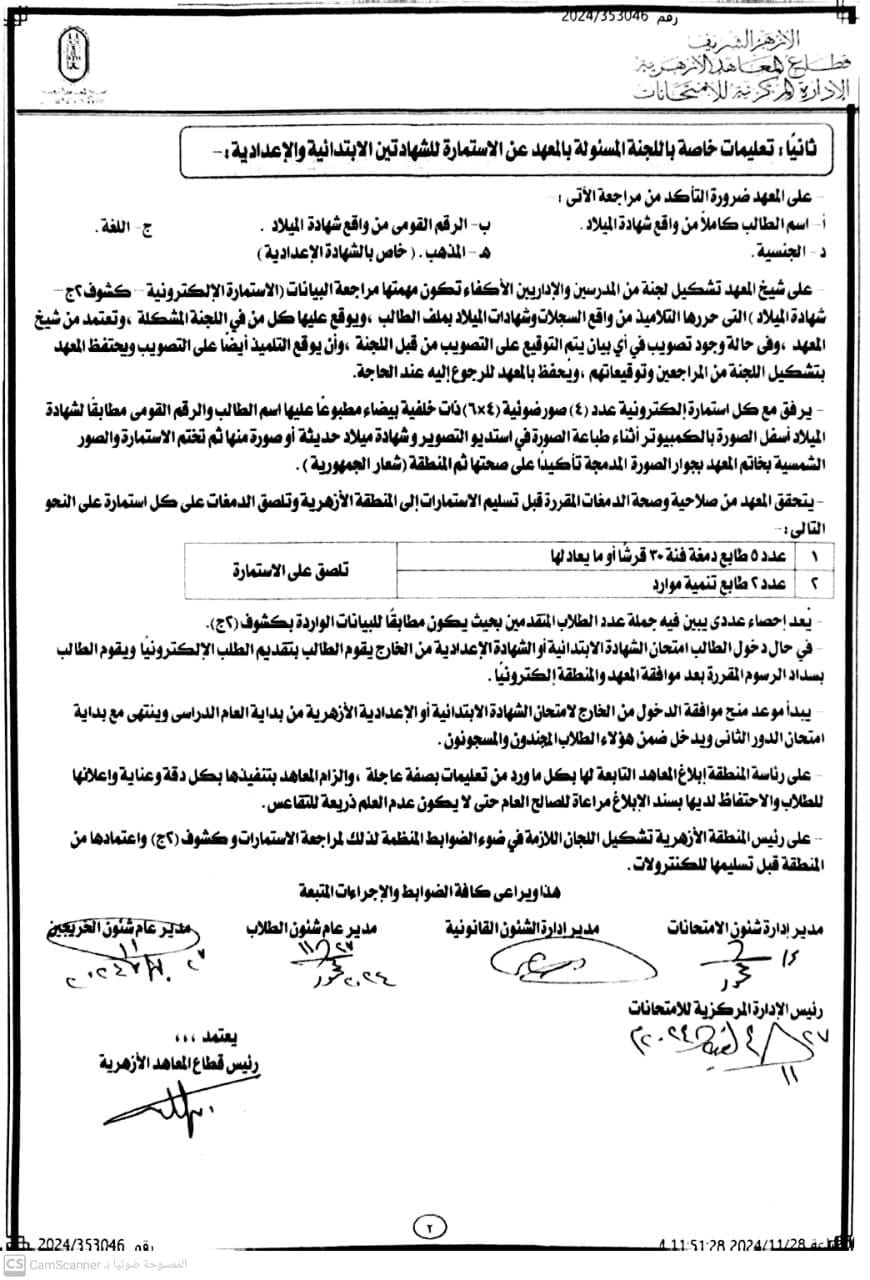 رقم 2024/353046
الأزهر الشريف
قطاع المعاهد الأزهرية
الإدارة المركزية للامتحانات
ثانيًا: تعليمات خاصة باللجنة المسئولة بالمعهد عن الاستمارة للشهادتين الابتدائية والإعدادية:-
- على المعهد ضرورة التأكد من مراجعة الأتى:
أ- اسم الطالب كاملاً من واقع شهادة الميلاد. ب- الرقم القومى من واقع شهادة الميلاد. ج- اللغة.
د- الجنسية. هـ- المذهب. (خاص بالشهادة الإعدادية)
- على شيخ المعهد تشكيل لجنة من المدرسين والإداريين الأكفاء تكون مهمتها مراجعة البيانات (الاستمارة الإلكترونية – كشوف ٢ج –
شهادة الميلاد) التى حررها التلاميذ من واقع السجلات وشهادات الميلاد بملف الطالب، ويوقع عليها كل من في اللجنة المشكلة، وتعتمد من شيخ
المعهد، وفى حالة وجود تصويب في أي بيان يتم التوقيع على التصويب من قبل اللجنة، وأن يوقع التلميذ أيضًا على التصويب ويحتفظ المعهد
بتشكيل اللجنة من المراجعين وتوقيعاتهم، ويُحفظ بالمعهد للرجوع إليه عند الحاجة.
- يرفق مع كل استمارة إلكترونية عدد (٤) صور ضوئية (٤×٦) ذات خلفية بيضاء مطبوعًا عليها اسم الطالب والرقم القومى مطابقًا لشهادة
الميلاد أسفل الصورة بالكمبيوتر أثناء طباعة الصورة في استديو التصوير وشهادة ميلاد حديثة أو صورة منها ثم تختم الاستمارة والصور
الشمسية بخاتم المعهد بجوار الصورة المدمجة تأكيدًا على صحتها ثم المنطقة (شعار الجمهورية).
- يتحقق المعهد من صلاحية وصحة الدمغات المقررة قبل تسليم الاستمارات إلى المنطقة الأزهرية وتلصق الدمغات على كل استمارة على النحو
التالى:-
١ عدد ٥ طابع دمغة فئة ٣٠ قرشًا أو ما يعادلها
تلصق على الاستمارة
٢ عدد ٢ طابع تنمية موارد
- يُعد إحصاء عددى يبين فيه جملة عدد الطلاب المتقدمين بحيث يكون مطابقًا للبيانات الواردة بكشوف (٢ج).
- في حال دخول الطالب امتحان الشهادة الابتدائية أو الشهادة الإعدادية من الخارج يقوم الطالب بتقديم الطلب الإلكترونيًا ويقوم الطالب
بسداد الرسوم المقررة بعد موافقة المعهد والمنطقة إلكترونيًا.
- يبدأ موعد منح موافقة الدخول من الخارج لامتحان الشهادة الابتدائية أو الإعدادية الأزهرية من بداية العام الدراسى وينتهى مع بداية
امتحان الدور الثانى ويدخل ضمن هؤلاء الطلاب المجندون والمسجونون.
- على رئاسة المنطقة إبلاغ المعاهد التابعة لها بكل ما ورد من تعليمات بصفة عاجلة، والزام المعاهد بتنفيذها بكل دقة وعناية وإعلانها
للطلاب والاحتفاظ لديها بسند الإبلاغ مراعاة للصالح العام حتى لا يكون عدم العلم ذريعة للتقاعس.
- على رئيس المنطقة الأزهرية تشكيل اللجان اللازمة في ضوء الضوابط المنظمة لذلك لمراجعة الاستمارات وكشوف (٢ج) واعتمادها من
المنطقة قبل تسليمها للكنترولات.
هذا ويراعى كافة الضوابط والإجراءات المتبعة
مدير إدارة شئون الامتحانات مدير إدارة الشئون القانونية مدير عام شئون الطلاب مدير عام شئون الخريجين
رئيس الإدارة المركزية للامتحانات
يعتمد ،،،
رئيس قطاع المعاهد الأزهرية
٢
رقم 2024/353046
2024/11/28 11:51:28
CS CamScanner الممسوحة ضوئيا بـ